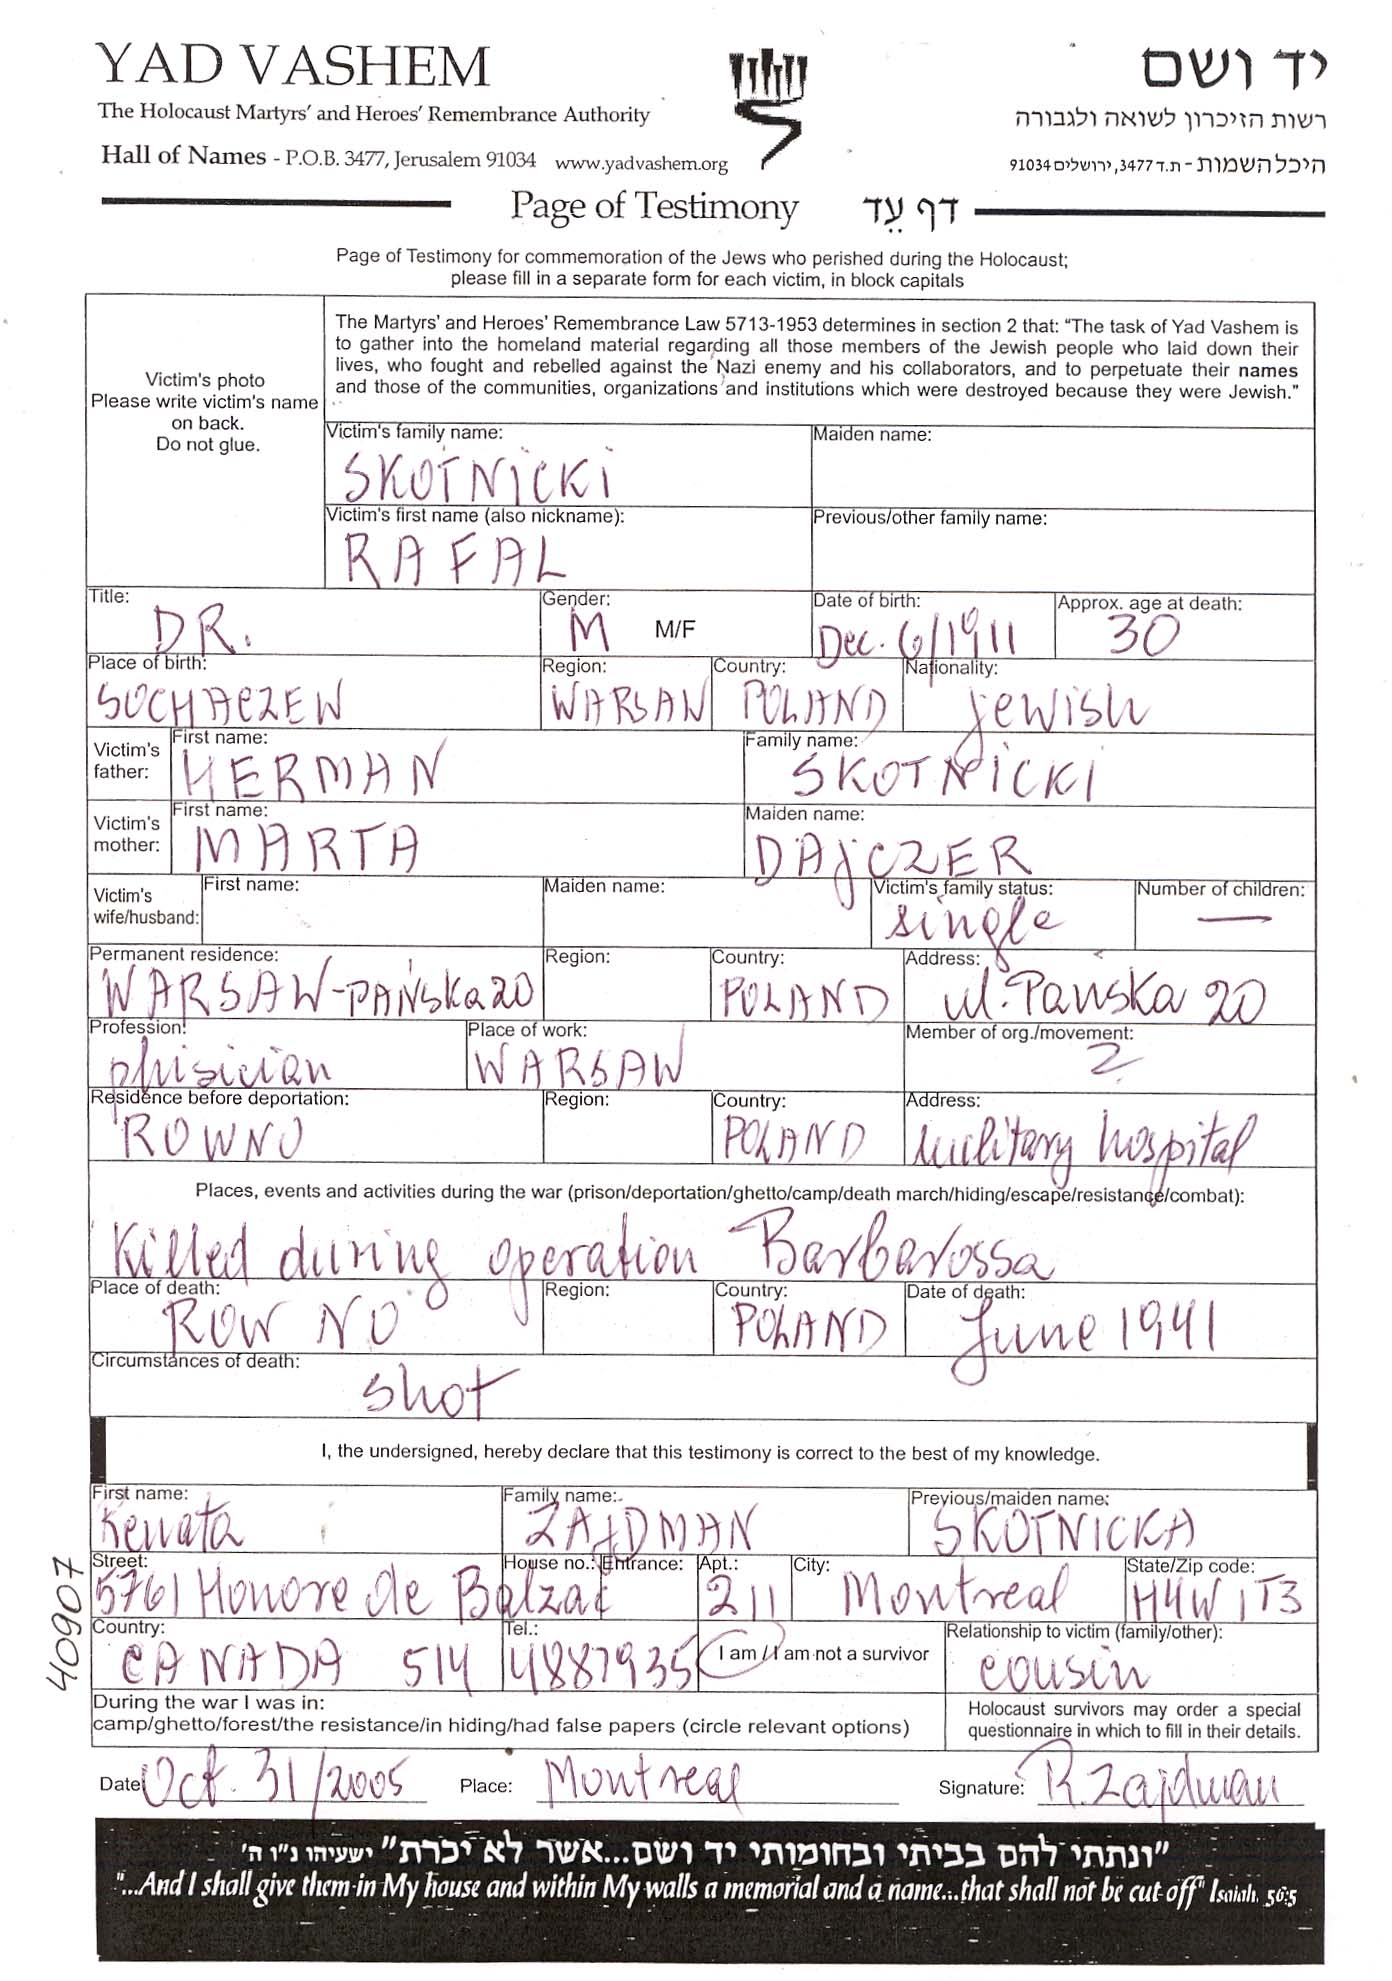 YAD VASHEM
יד ושם
The Holocaust Martyrs' and Heroes' Remembrance Authority
רשות הזיכרון לשואה ולגבורה
Hall of Names - P.O.B. 3477, Jerusalem 91034 www.yadvashem.org
היכל השמות - ת.ד 3477, ירושלים 91034
Page of Testimony דף עֵד
Page of Testimony for commemoration of the Jews who perished during the Holocaust;
please fill in a separate form for each victim, in block capitals
Victim's photo
Please write victim's name
on back.
Do not glue.
The Martyrs' and Heroes' Remembrance Law 5713-1953 determines in section 2 that: "The task of Yad Vashem is
to gather into the homeland material regarding all those members of the Jewish people who laid down their
lives, who fought and rebelled against the Nazi enemy and his collaborators, and to perpetuate their names
and those of the communities, organizations and institutions which were destroyed because they were Jewish."
Victim's family name: Maiden name:
SKOTNICKI
Victim's first name (also nickname): Previous/other family name:
RAFAL
Title: Gender: Date of birth: Approx. age at death:
DR. M M/F Dec. 6/1911 30
Place of birth: Region: Country: Nationality:
SOCHACZEW WARSAW POLAND jewish
Victim's father: First name: Family name:
HERMAN SKOTNICKI
Victim's mother: First name: Maiden name:
MARTA DAJCZER
Victim's wife/husband: First name: Maiden name: Victim's family status: Number of children:
single —
Permanent residence: Region: Country: Address:
WARSAW-PAŃSKa 20 POLAND ul. Pańska 20
Profession: Place of work: Member of org./movement:
phisician WARSAW ?
Residence before deportation: Region: Country: Address:
ROWNO POLAND military hospital
Places, events and activities during the war (prison/deportation/ghetto/camp/death march/hiding/escape/resistance/combat):
Killed during operation Barbarossa
Place of death: Region: Country: Date of death:
ROWNO POLAND June 1941
Circumstances of death:
shot
I, the undersigned, hereby declare that this testimony is correct to the best of my knowledge.
First name: Family name: Previous/maiden name:
Renata ZAJDMAN SKOTNICKA
Street: House no.: Entrance: Apt.: City: State/Zip code:
5761 Honore de Balzac 211 Montreal H4W 1T3
Country: Tel.: Relationship to victim (family/other):
CANADA 514 4887935 I am / I am not a survivor cousin
During the war I was in:
camp/ghetto/forest/the resistance/in hiding/had false papers (circle relevant options)
Holocaust survivors may order a special
questionnaire in which to fill in their details.
Date Oct. 31/2005 Place: Montreal Signature: R. Zajdman
40907
"ונתתי להם בביתי ובחומותי יד ושם...אשר לא יכרת" ישעיהו נ"ו ה'
"...And I shall give them in My house and within My walls a memorial and a name...that shall not be cut off" Isaiah, 56:5